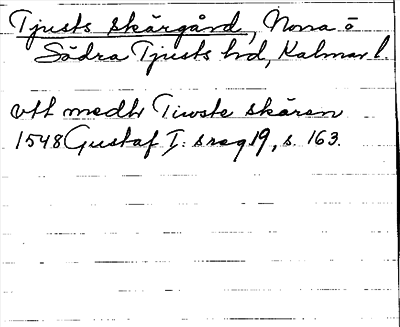 Tjusts skärgård, Norra o
Södra Tjusts hd, Kalmar l.
vtt medh Tiwste skären
1548 Gustaf I:s reg 19, s. 163.